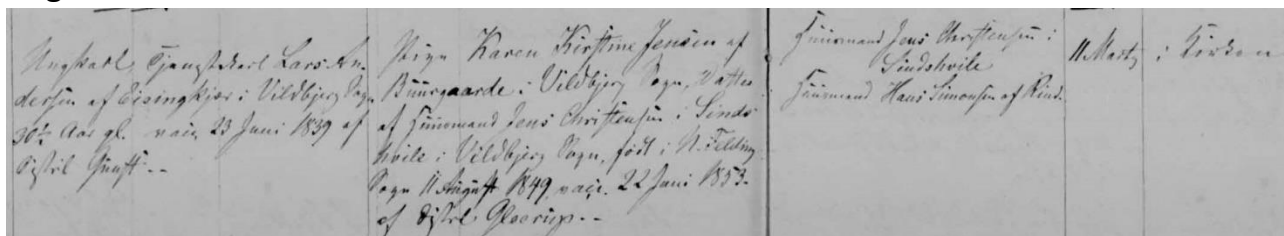 Ungkarl, Tjenestekarl Lars An-
dersen af Eisingkjær i Vildbjerg Sogn
30½ Aar gl. vacc. 23 Juni 1839 af
Distrl.
Pigen Karen Kirstine Jensen af
Buurgaarde i Vildbjerg Sogn, Datter
af Huusmand Jens Christensen i Sinds
hvile i Vildbjerg Sogn, født i N. Felding
Sogn 11 August 1849 vacc. 22 Juni 1853
af Distrl. Gloerup --
Huusmand Jens Christensen i
Sindshvile
Huusmand Hans Simonsen af Rind.
11 Marts
i Kirken